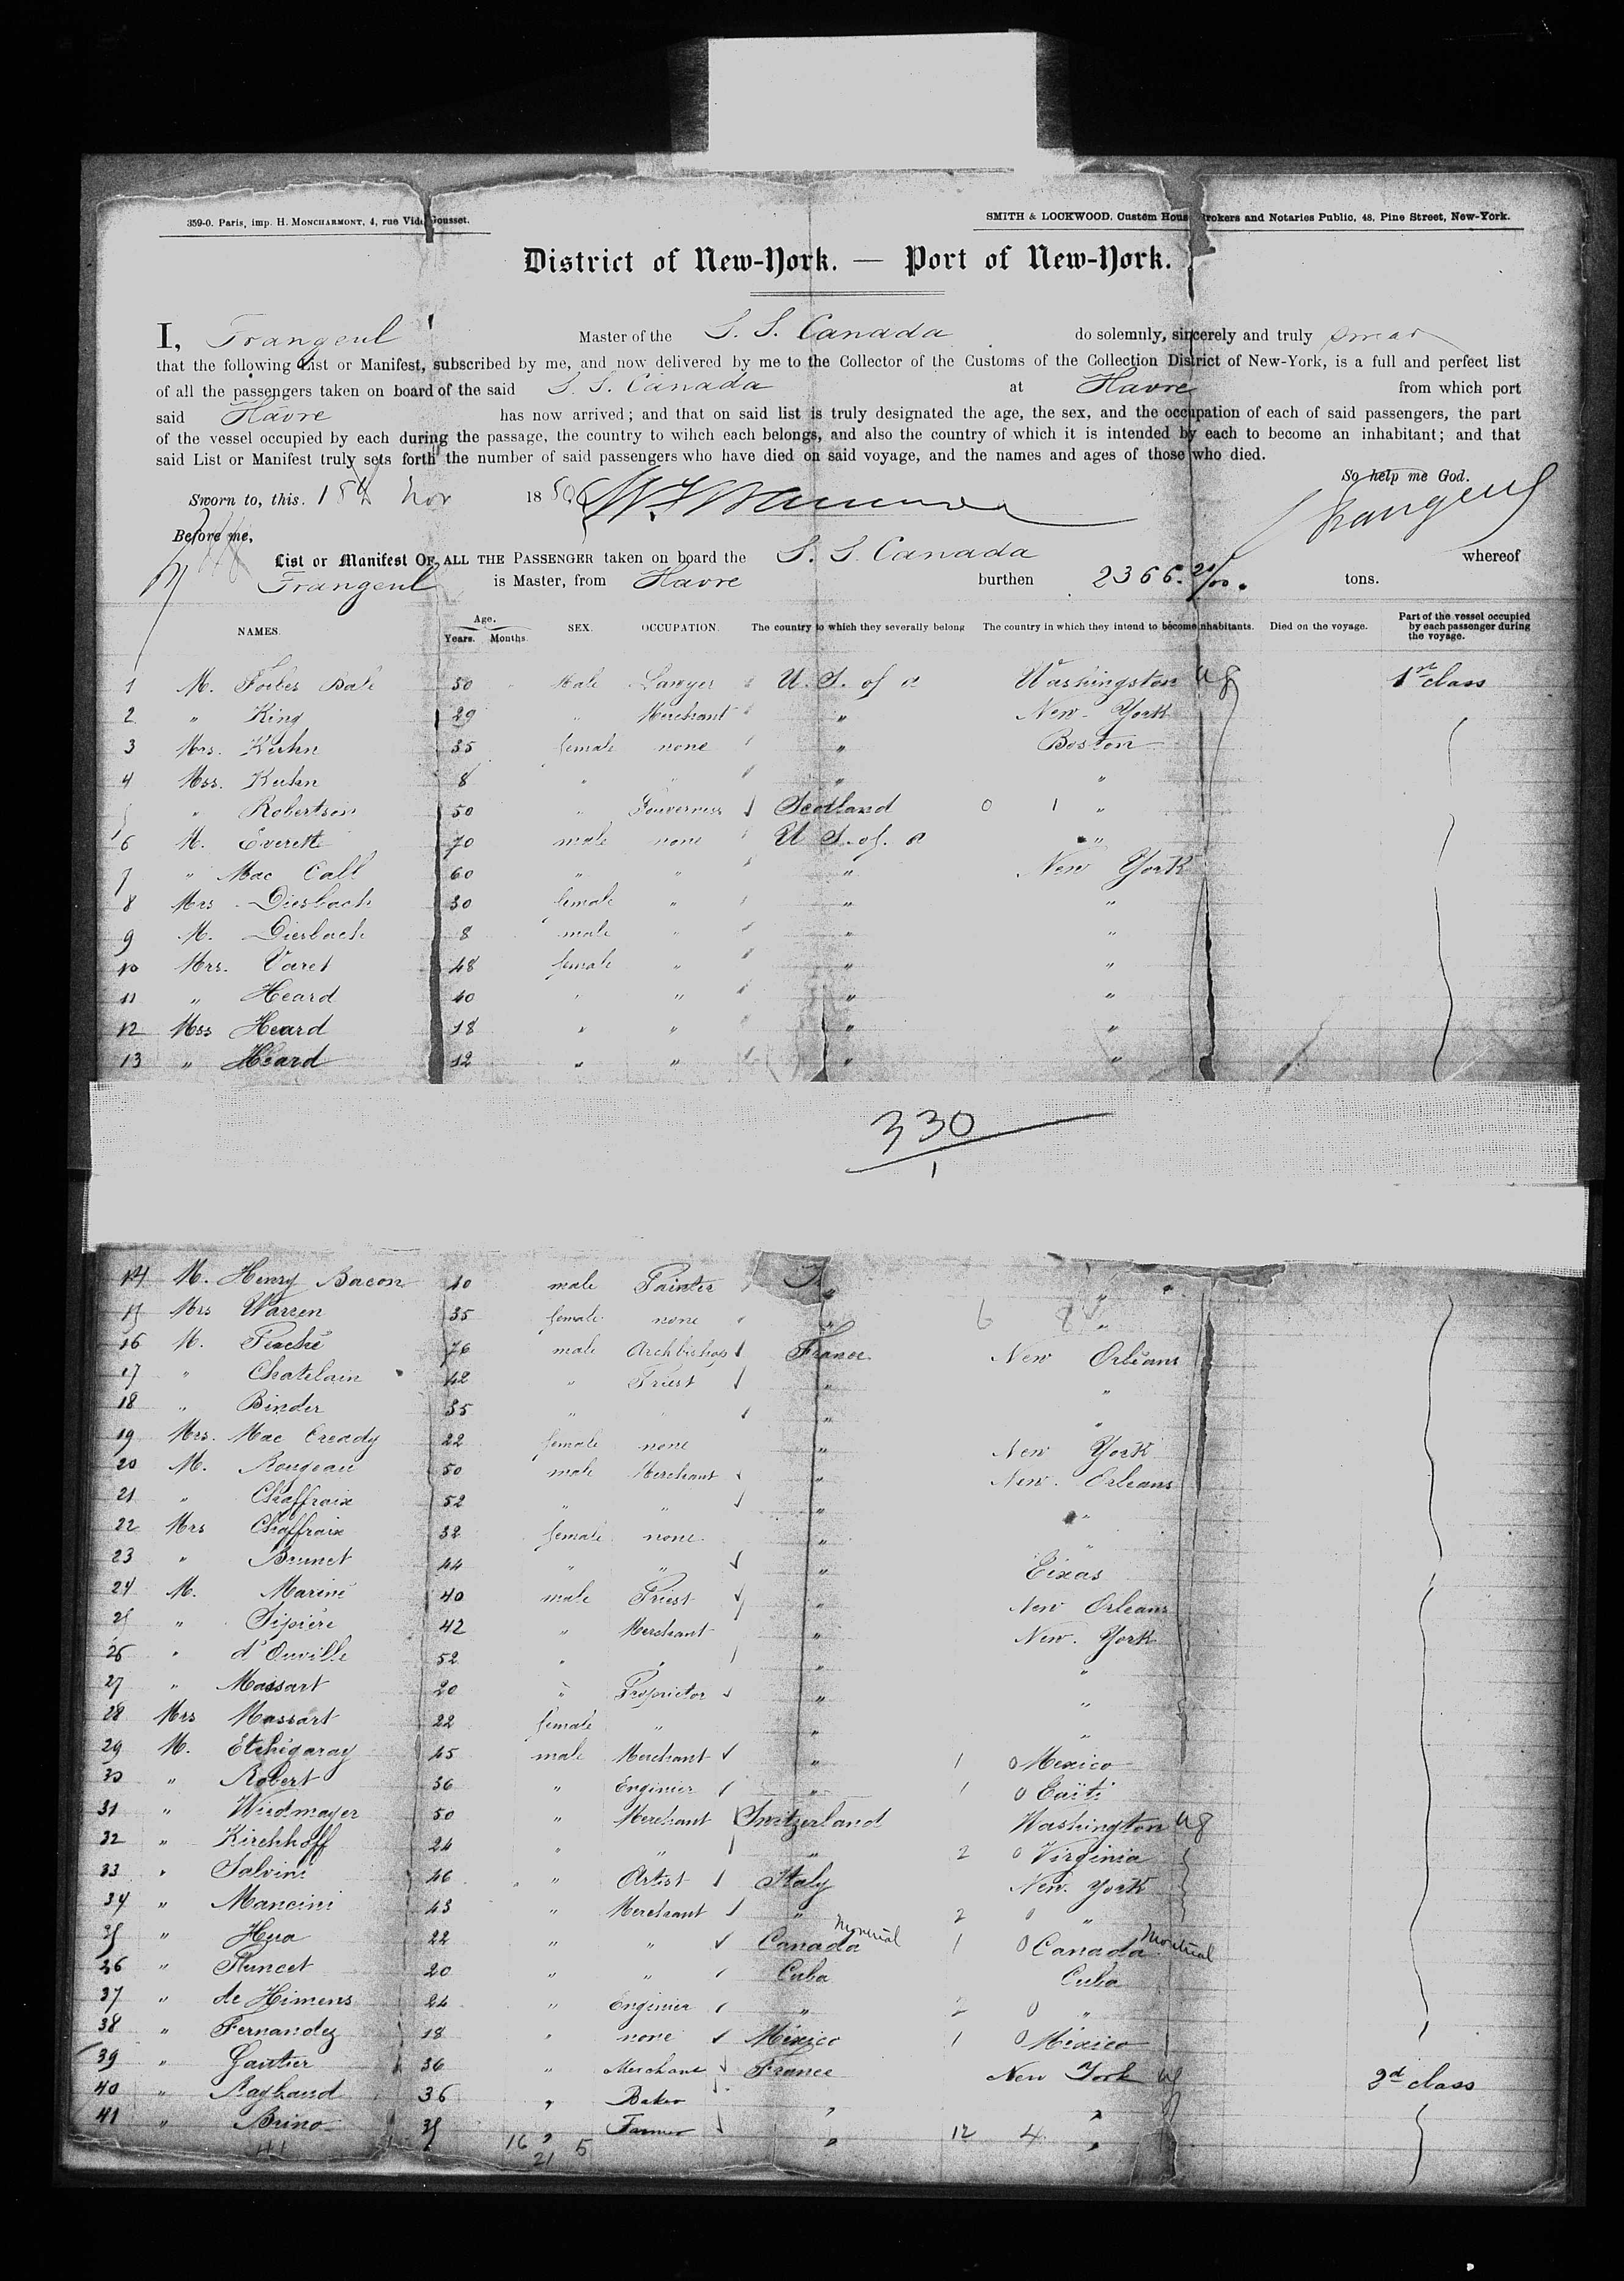 359-0. Paris, imp. H. MONCHARMONT, 4, rue Vide-Gousset.
SMITH & LOCKWOOD, Custom House Brokers and Notaries Public, 48, Pine Street, New-York.
District of New-York. — Port of New-York.
I, Frangeul Master of the S. S. Canada do solemnly, sincerely and truly swear
that the following List or Manifest, subscribed by me, and now delivered by me to the Collector of the Customs of the Collection District of New-York, is a full and perfect list
of all the passengers taken on board of the said S. S. Canada at Havre from which port
said Havre has now arrived; and that on said list is truly designated the age, the sex, and the occupation of each of said passengers, the part
of the vessel occupied by each during the passage, the country to wihch each belongs, and also the country of which it is intended by each to become an inhabitant; and that
said List or Manifest truly sets forth the number of said passengers who have died on said voyage, and the names and ages of those who died.
So help me God.
Sworn to, this. 18 Nov 188 Frangeul
Before me,
List or Manifest OF ALL THE PASSENGER taken on board the S. S. Canada whereof
Frangeul is Master, from Havre burthen 2366. 20/100 tons.
NAMES. Age. Years. Months. SEX. OCCUPATION. The country to which they severally belong The country in which they intend to become inhabitants. Died on the voyage. Part of the vessel occupied by each passenger during the voyage.
1 M. Forbes 50 Male Lawyer U. S. of a Washingston 1st class
2 " King 29 " Merchant " New-York
3 Mrs. Kuhn 35 female none " Boston
4 Mss. Kuhn 8 " " " "
5 " Robertson 50 " Gouverness Scotland 0 1 "
6 M. Everett 70 male none U S. of. a "
7 " Mac Call 60 " " " New York
8 Mrs Diesbach 30 female " " "
9 M. Diesbach 8 male " " "
10 Mrs. Varet 48 female " " "
11 " Heard 40 " " " "
12 Mss Heard 18 " " " "
13 " Heard 12 " " " "
330
1
14 M. Henry Bacon 40 male Painter " "
15 Mrs Warren 35 female none " 6 "
16 M. Perché 76 male Archbishop France New Orleans
17 " Chatelain 42 " Priest " "
18 " Binder 35 " " " "
19 Mrs. Mac Cready 22 female none " New York
20 M. Rougeau 50 male Merchant " New. Orleans
21 " Chaffraix 52 " " " "
22 Mrs Chaffraix 32 female none " "
23 " Brunet 44 " " " Texas
24 M. Mariné 40 male Priest " New Orleans
25 " Sipière 42 " Merchant " New. York
26 " d'Ouville 52 " " " "
27 " Massart 20 " Proprietor " "
28 Mrs Massart 22 female " " "
29 M. Etchégaray 45 male Merchant " 1 0 Mexico
30 " Robert 36 " Enginier " 1 0 Eaïti
31 " Wirdmayer 50 " Merchant Switzerland Washington
32 " Kirchhoff 24 " " " 2 0 Virginia
33 " Salvini 46 " Artist Italy New. York
34 " Mancini 43 " Merchant " 2 0 "
35 " Hua 22 " " Canada Montreal 1 0 Canada Montreal
36 " 20 " " Cuba Cuba
37 " de Himens 24 " Enginier " 2 0 "
38 " Fernandez 18 " none Mexico 1 0 Mexico
39 " Gautier 36 " Merchant France New York 2d class
40 " Raybaud 36 " Baker " "
41 " Brino 35 " Farmer " 12 4 "
41 16 21 5